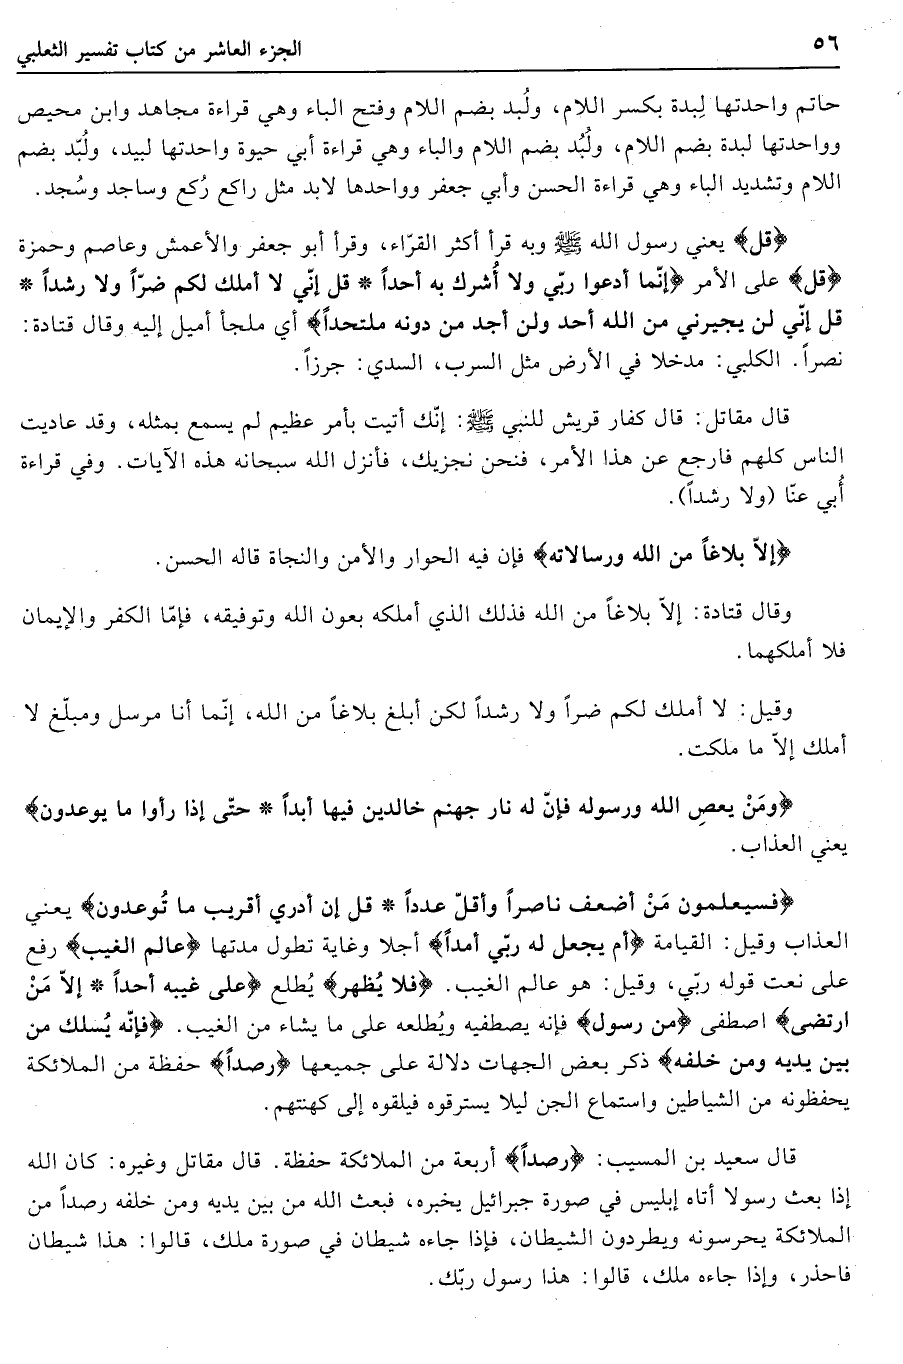 ٥٦ الجزء العاشر من كتاب تفسير الثعلبي
حاتم واحدتها لِبدة بكسر اللام، ولُبد بضم اللام وفتح الباء وهي قراءة مجاهد وابن محيص
وواحدتها لبدة بضم اللام، ولُبُد بضم اللام والباء وهي قراءة أبي حيوة واحدتها لبيد، ولُبّد بضم
اللام وتشديد الباء وهي قراءة الحسن وأبي جعفر وواحدها لابد مثل راكع رُكع وساجد وسُجد.
﴿قل﴾ يعني رسول الله ﷺ وبه قرأ أكثر القرّاء، وقرأ أبو جعفر والأعمش وعاصم وحمزة
﴿قل﴾ على الأمر ﴿إنّما أدعوا ربّي ولا أُشرك به أحداً * قل إنّي لا أملك لكم ضرّاً ولا رشداً *
قل إنّي لن يجيرني من الله أحد ولن أجد من دونه ملتحداً﴾ أي ملجأ أميل إليه وقال قتادة:
نصراً. الكلبي: مدخلا في الأرض مثل السرب، السدي: جرزاً.
قال مقاتل: قال كفار قريش للنبي ﷺ: إنّك أتيت بأمر عظيم لم يسمع بمثله، وقد عاديت
الناس كلهم فارجع عن هذا الأمر، فنحن نجزيك، فأنزل الله سبحانه هذه الآيات. وفي قراءة
أُبي عنّا (ولا رشداً).
﴿إلاّ بلاغاً من الله ورسالاته﴾ فإن فيه الحوار والأمن والنجاة قاله الحسن.
وقال قتادة: إلاّ بلاغاً من الله فذلك الذي أملكه بعون الله وتوفيقه، فإمّا الكفر والإيمان
فلا أملكهما.
وقيل: لا أملك لكم ضراً ولا رشداً لكن أبلغ بلاغاً من الله، إنّما أنا مرسل ومبلّغ لا
أملك إلاّ ما ملكت.
﴿ومَنْ يعصِ الله ورسوله فإنّ له نار جهنم خالدين فيها أبداً * حتّى إذا رأوا ما يوعدون﴾
يعني العذاب.
﴿فسيعلمون مَنْ أضعف ناصراً وأقلّ عدداً * قل إن أدري أقريب ما تُوعدون﴾ يعني
العذاب وقيل: القيامة ﴿أم يجعل له ربّي أمداً﴾ أجلا وغاية تطول مدتها ﴿عالم الغيب﴾ رفع
على نعت قوله ربّي، وقيل: هو عالم الغيب. ﴿فلا يُظهر﴾ يُطلع ﴿على غيبه أحداً * إلاّ مَنْ
ارتضى﴾ اصطفى ﴿من رسول﴾ فإنه يصطفيه ويُطلعه على ما يشاء من الغيب. ﴿فإنّه يُسلك من
بين يديه ومن خلفه﴾ ذكر بعض الجهات دلالة على جميعها ﴿رصداً﴾ حفظة من الملائكة
يحفظونه من الشياطين واستماع الجن ليلا يسترقوه فيلقوه إلى كهنتهم.
قال سعيد بن المسيب: ﴿رصداً﴾ أربعة من الملائكة حفظة. قال مقاتل وغيره: كان الله
إذا بعث رسولا أتاه إبليس في صورة جبرائيل يخبره، فبعث الله من بين يديه ومن خلفه رصداً من
الملائكة يحرسونه ويطردون الشيطان، فإذا جاءه شيطان في صورة ملك، قالوا: هذا شيطان
فاحذر، وإذا جاءه ملك، قالوا: هذا رسول ربّك.